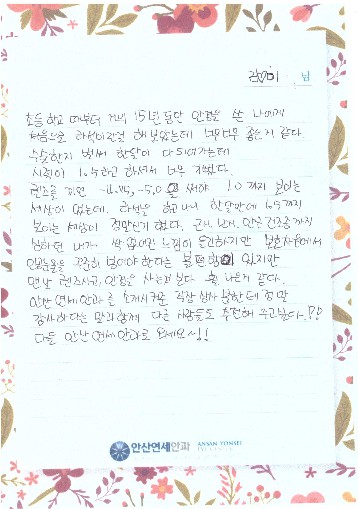 김♡이 님
초등학교 때부터 거의 15년 동안 안경을 쓴 나에게
처음으로 라섹이란걸 해 보았는데 너무너무 좋은거 같다.
수술한지 벌써 한달이 다 되어가는데
시력이 1.5라고 하셔서 너무 기뻤다.
렌즈를 끼면 -4.75, -5.0 을 써야 1.0 까지 보이는
세상이 었는데. 라섹을 하고나니 한달만에 1.5까지
보이는 세상이 정말신기 했다. 근시, 난시, 안구건조증까지
심하던 내가 싹 없어진 느낌이 들긴하지만
인공눈물을 꾸준히 넣어야 한다는 불편함이 있지만
맨날 렌즈사고, 안경은 사는것 보다 훨 나은거 같다.
안산 연세안과를 소개시켜준 직장 상사 분한테 정말
감사하다는 말과 함께 다른 사람들도 추천해 주고싶다.!!
다들 안산 연세안과로 오세요~!!
안산연세안과 ANSAN YONSEI
EYE CENTER